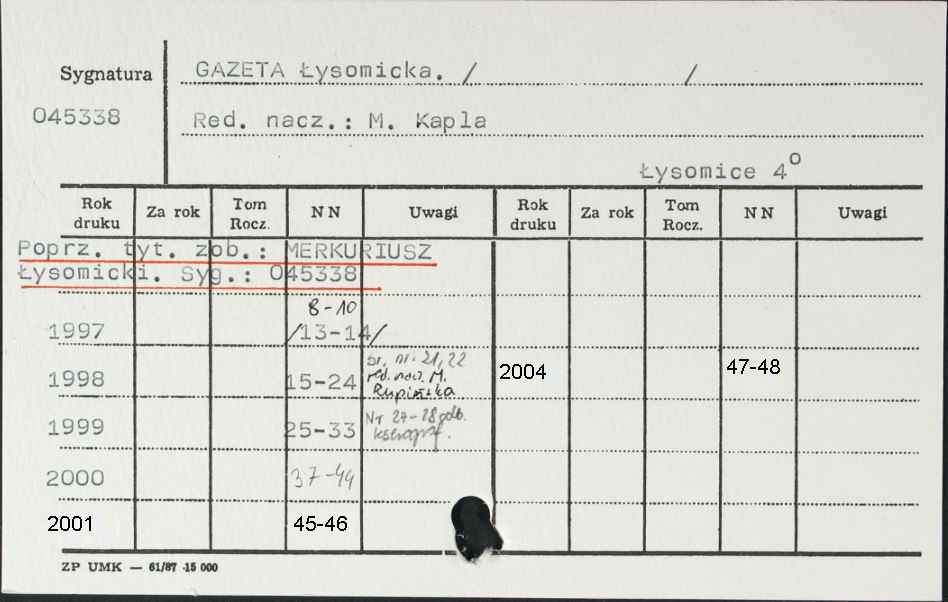 Sygnatura
GAZETA Łysomicka. / /
045338
Red. nacz.: M. Kapla
Łysomice 4o
Rok druku Za rok Tom Rocz. NN Uwagi Rok druku Za rok Tom Rocz. NN Uwagi
Poprz. tyt. zob.: MERKURIUSZ
Łysomicki. Syg.: 045338
8-10
1997 /13-14/
1998 15-24 nr. 21,22
red. nacz. M.
Rupińska
2004 47-48
1999 25-33 Nr 27-28 odb.
kserogr.
2000 37-44
2001 45-46
ZP UMK — 61/87 15 000